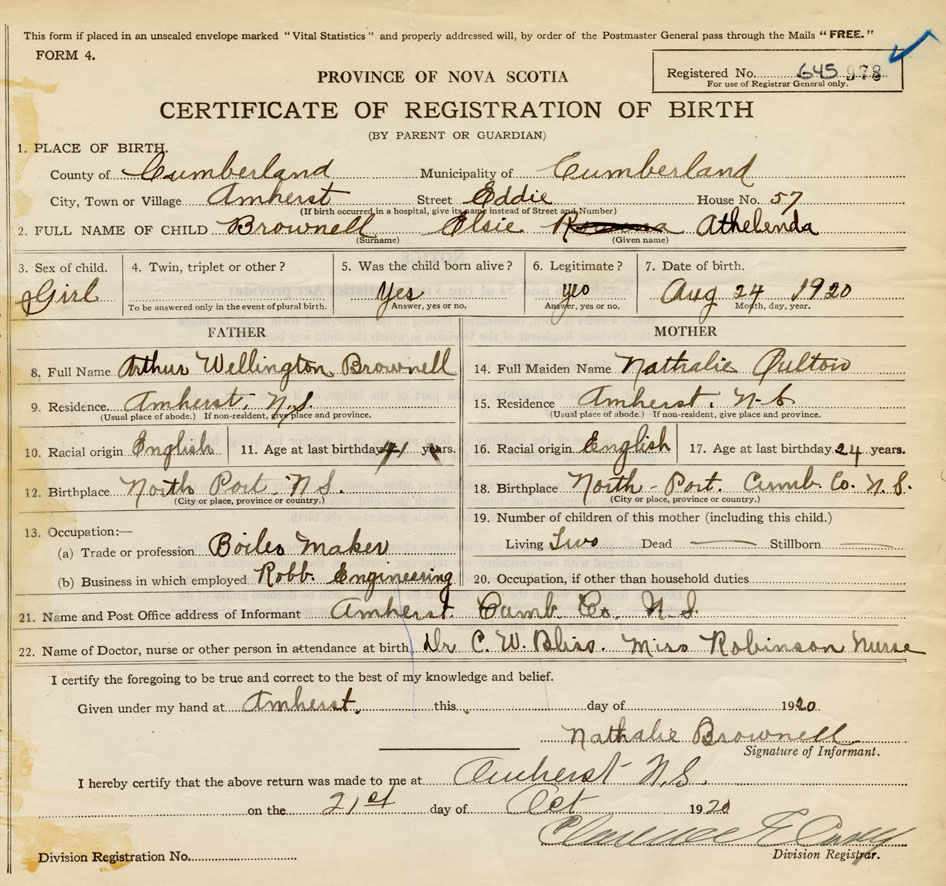 This form if placed in an unscaled envelope marked "Vital Statistics" and properly addressed will, by order of the Postmaster General pass through the Mails "FREE."
FORM 4.
Registered No. 645 978
For use of Registrar General only.
PROVINCE OF NOVA SCOTIA
CERTIFICATE OF REGISTRATION OF BIRTH
(BY PARENT OR GUARDIAN)
1. PLACE OF BIRTH.
County of Cumberland Municipality of Cumberland
City, Town or Village Amherst Street Eddie House No. 57
(If birth occurred in a hospital, give its name instead of Street and Number)
2. FULL NAME OF CHILD Brownell Elsie Athelenda
(Surname) (Given name)
3. Sex of child. 4. Twin, triplet or other? 5. Was the child born alive? 6. Legitimate? 7. Date of birth.
Girl Yes yes Aug 24 1920
To be answered only in the event of plural birth. Answer, yes or no. Answer, yes or no. Month, day, year.
FATHER MOTHER
8. Full Name Arthur Wellington Brownell 14. Full Maiden Name Nathalie
9. Residence Amherst, N.S. 15. Residence Amherst. N.S
(Usual place of abode.) If non-resident, give place and province. (Usual place of abode.) If non-resident, give place and province.
10. Racial origin English 11. Age at last birthday 41 years. 16. Racial origin English 17. Age at last birthday 24 years.
12. Birthplace North Port. N S. 18. Birthplace North-Port. Cumb. Co. N. S.
(City or place, province or country.) (City or place, province or country.)
13. Occupation:— 19. Number of children of this mother (including this child.)
(a) Trade or profession Boiler Maker Living Two Dead — Stillborn —
(b) Business in which employed Robb. Engineering 20. Occupation, if other than household duties
21. Name and Post Office address of Informant Amherst. Cumb Co. N. S.
22. Name of Doctor, nurse or other person in attendance at birth Dr C. W. Bliss. Miss Robinson Nurse
I certify the foregoing to be true and correct to the best of my knowledge and belief.
Given under my hand at Amherst. this day of 1920
Nathalie Brownell
Signature of Informant.
I hereby certify that the above return was made to me at Amherst N.S.
on the 21st day of Oct 1920
Clarence F
Division Registration No. Division Registrar.